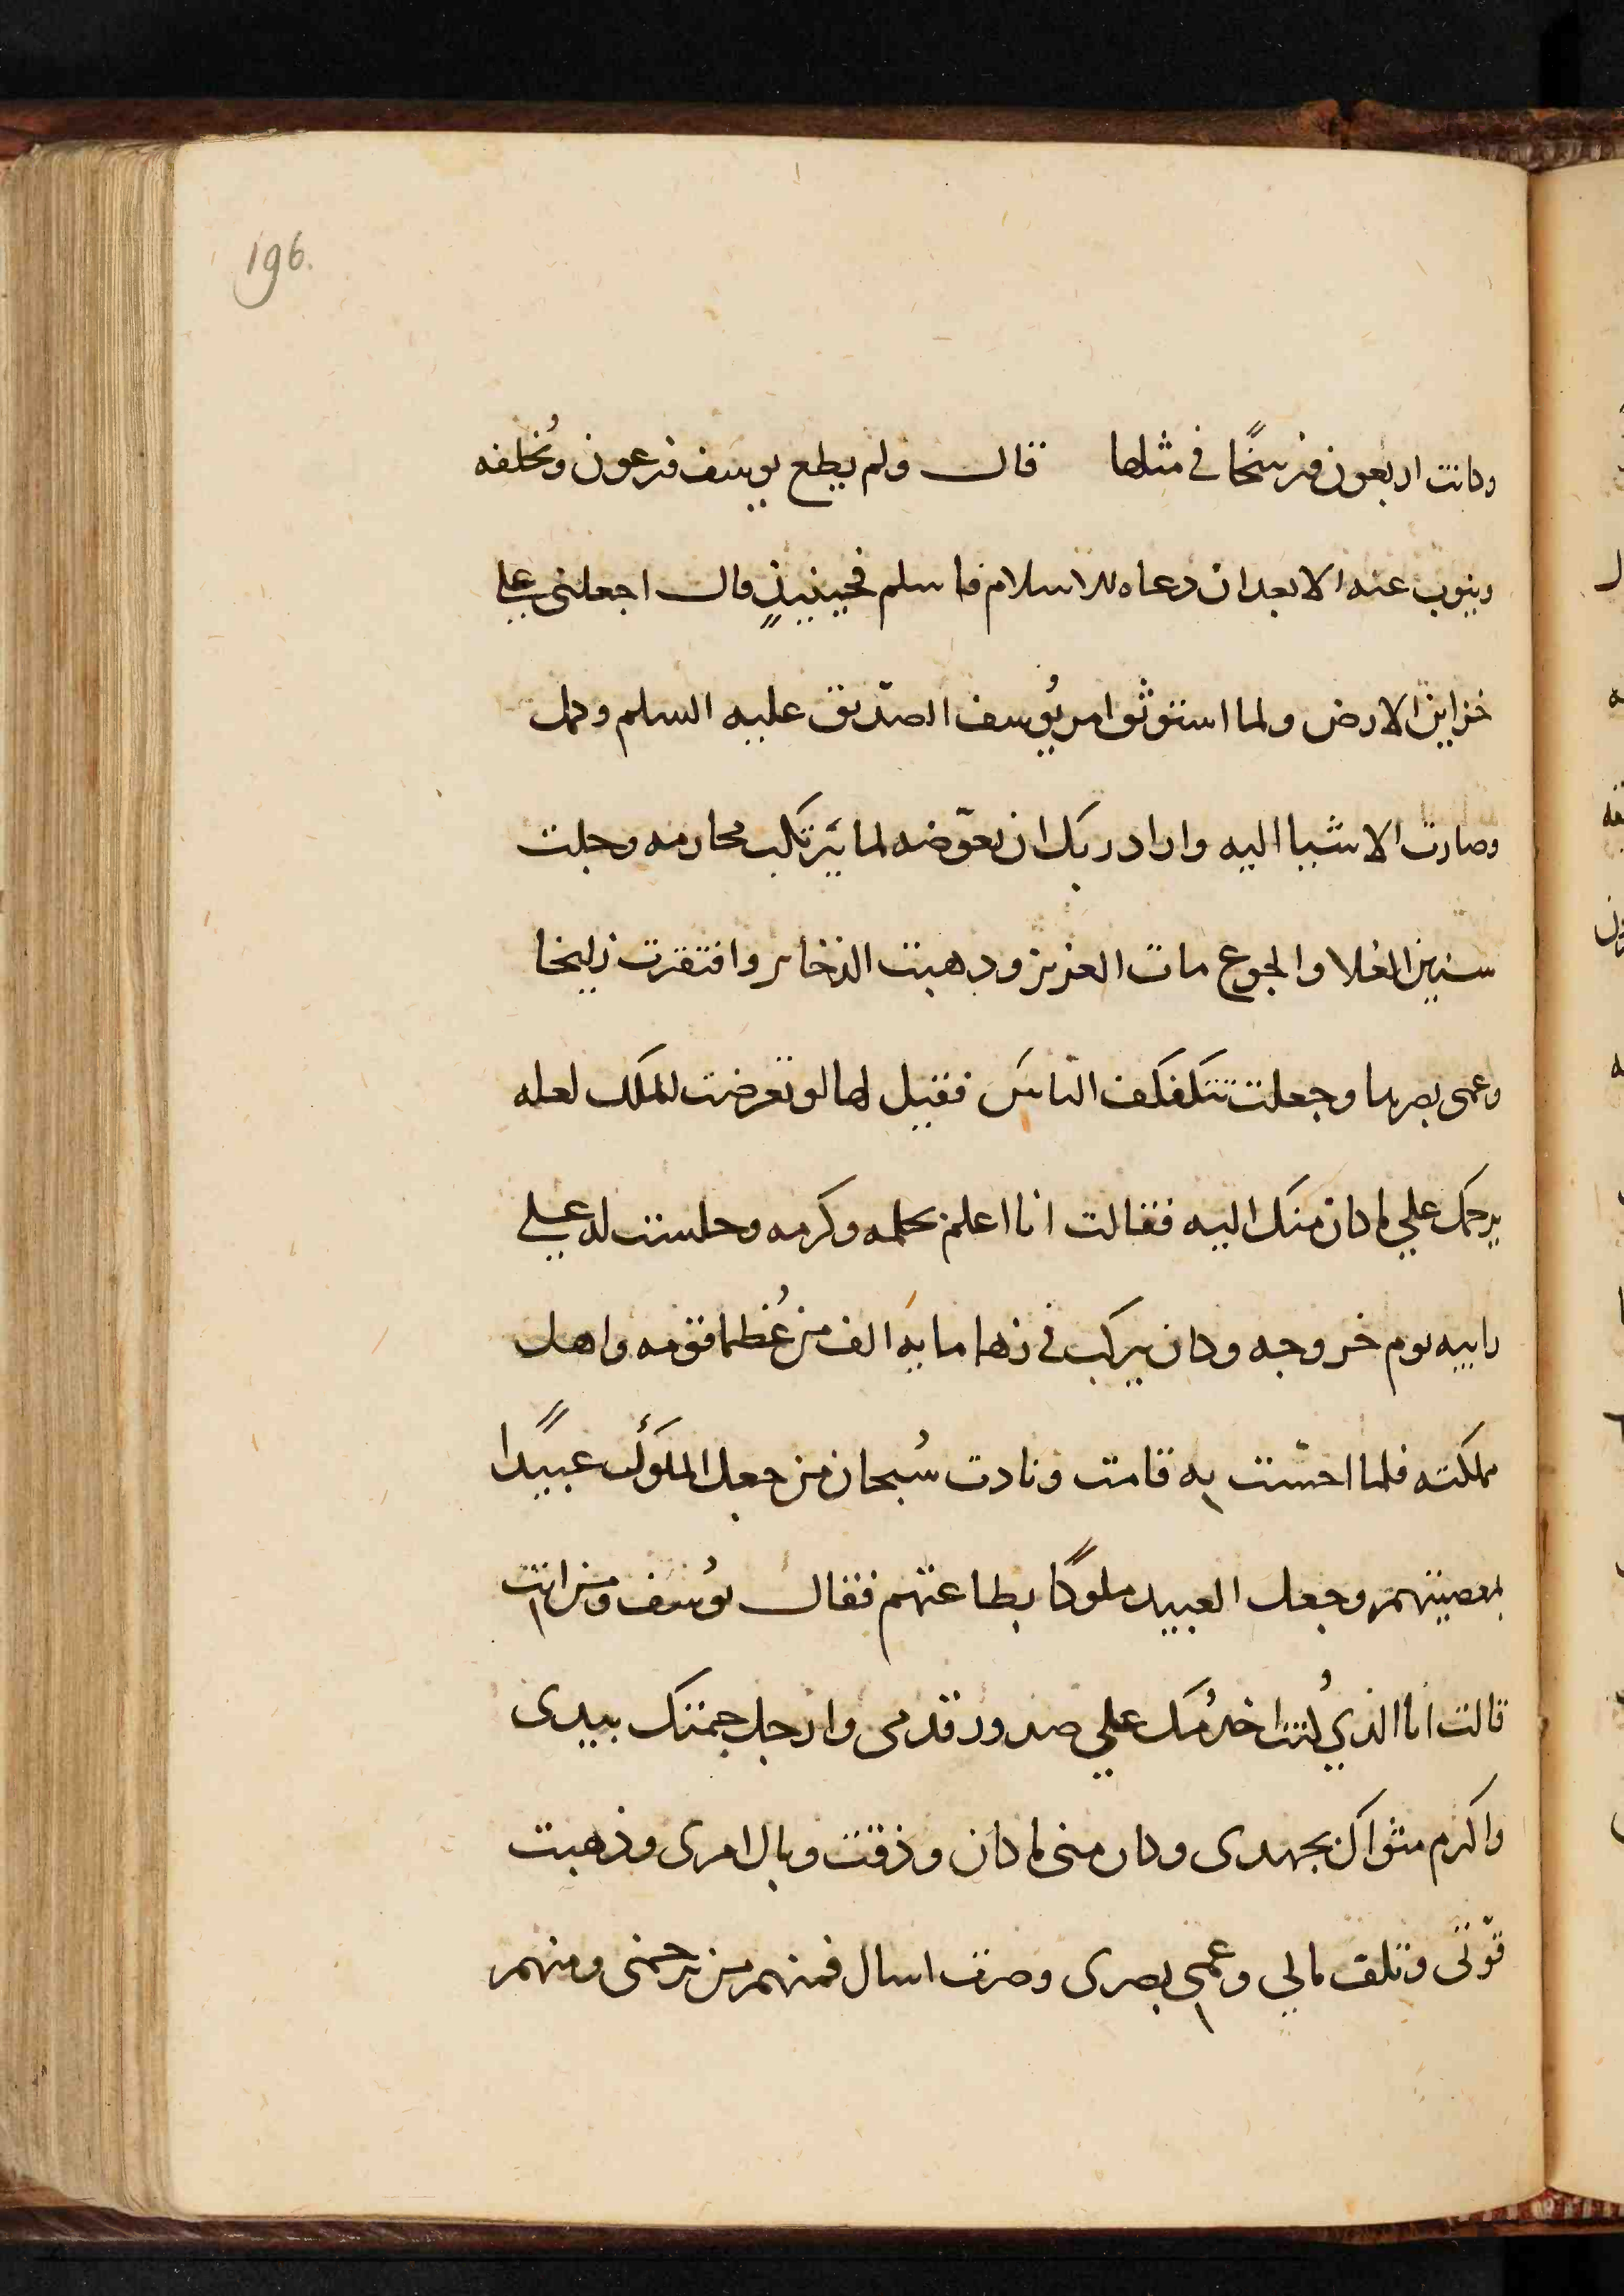 196.
وكانت اربعون فرسخًا في مثلها قال ولم يطع يوسف فرعون وُيخلفه
وينوب عنه الا بعد ان دعاه للاسلام فاسلم فحينيذٍ قال اجعلنى على
خزاين الارض ولما استوثق امر يُوسف الصدّيق عليه السلم وكمل
وصارت الاشيا اليه واراد ربك ان يعوّضه لما يرتكب محارمه وجلت
سنين الغلا والجوع مات العزيز وذهبت الذخاير وافتقرت زليخا
وعمى بصرها وجعلت تتكفكف الناس فقيل لها لو تعرضت للملك لعله
يرحمك على ما كان منك اليه فقالت انا اعلم بحلمه وكرمه وجلست له على
رابيه يوم خروجه وكان يركب في زها مايه الف من عُظما قومه واهل
مملكته فلما احسّت به قامت ونادت سُبحان من جعل الملوك عبيدًا
بمعصيتهم وجعل العبيد ملوكًا بطاعتهم فقال يوُسف ومن انت
قالت انا الذي كُنت اخدُمك علي صدور قدمى وارجل جمتك بيدى
واكرم مثواك بجهدى وكان منى ما كان وذقت وبال امرى وذهبت
قوّتى وتلف مالي وعمي بصرى وصرت اسال فمنهم من يرحمنى ومنهم